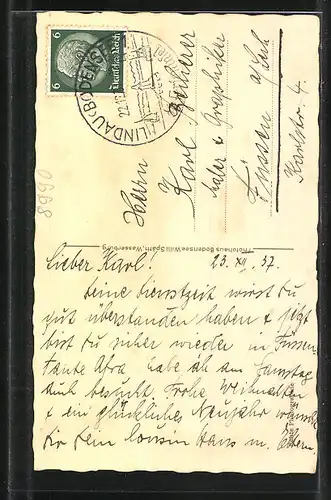 6
6
Deutsches Reich
LINDAU (BODENSEE)
Herrn
Karl
Maler & Graphiker
Füssen a/Lech
Karlstr. 4.
Photohaus Bodensee Willi Späth, Wasserburg
8990
Lieber Karl! 23. XII. 37.
Deine Dienstzeit wirst Du
gut überstanden haben & jetzt
bist Du sicher wieder in Füssen
Tante Afra habe ich am Samstag
auch besucht. Frohe Weihnachten
& ein glückliches Neujahr wünscht
Dir Dein Cousin Hans m. Eltern.